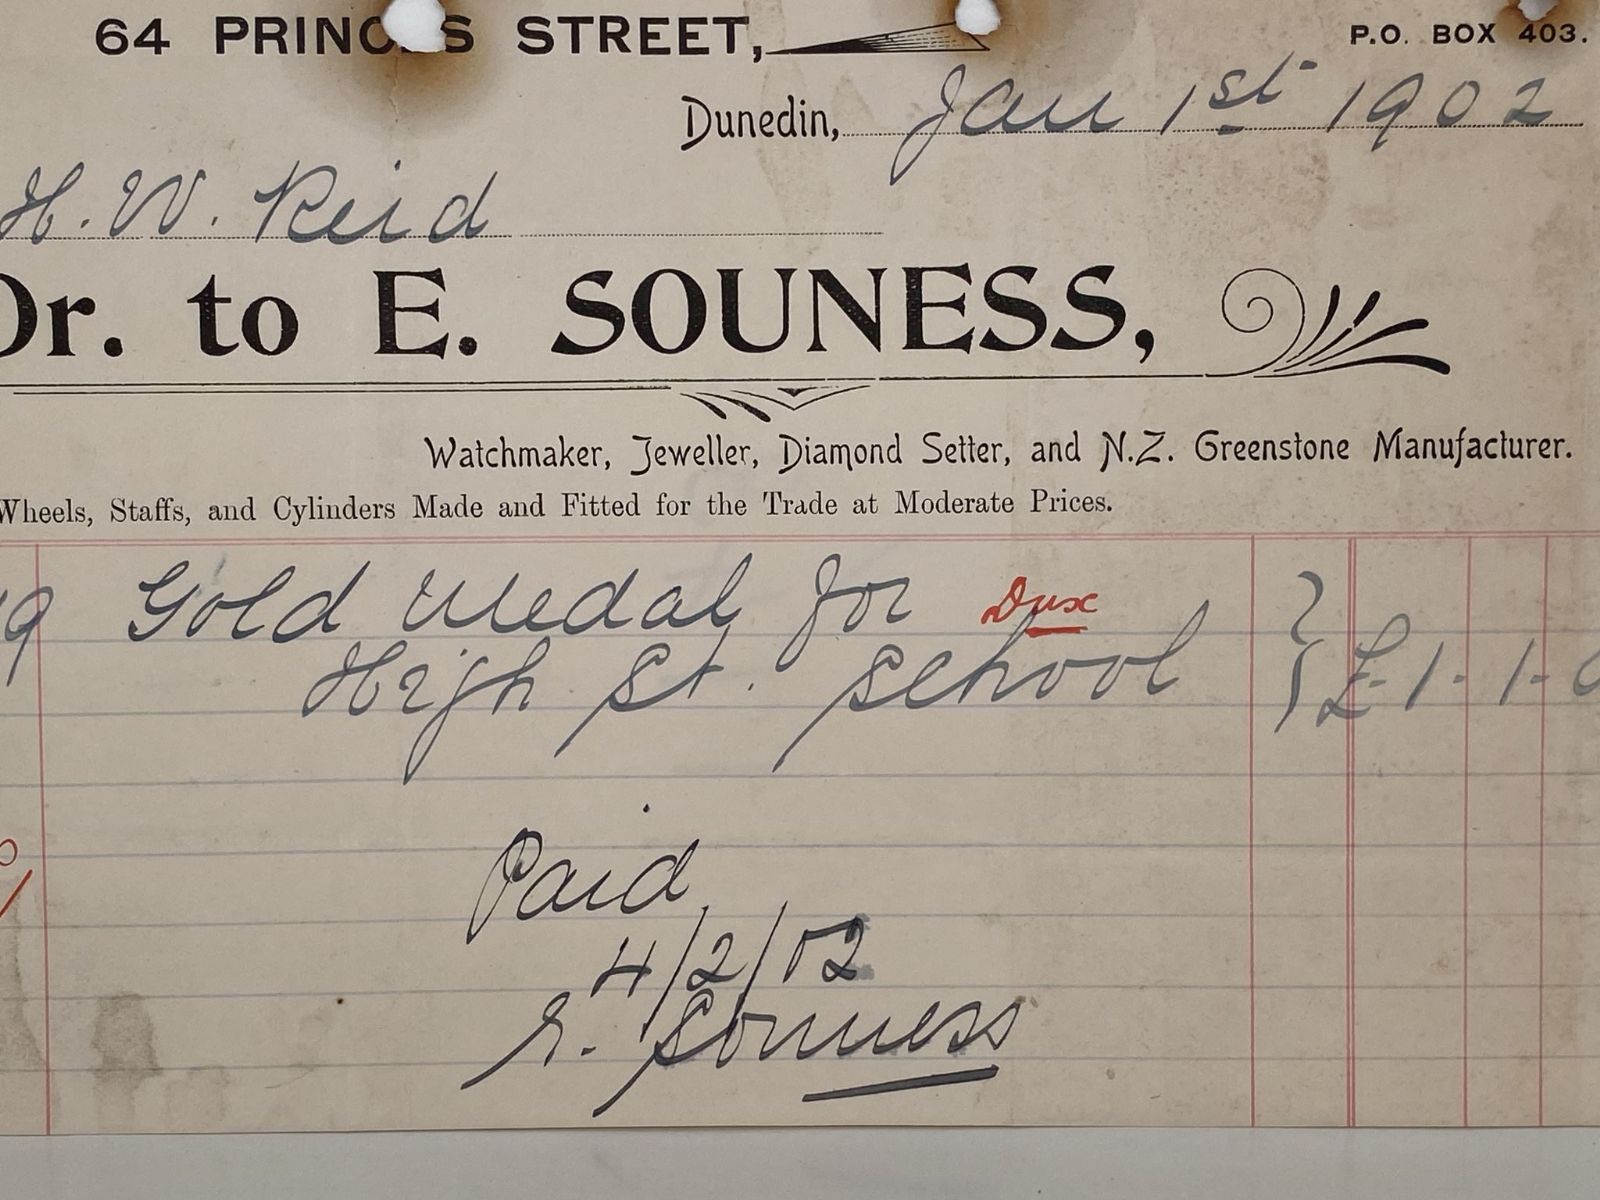 64 PRINCES STREET,
P.O. BOX 403.
Dunedin, Jan 1st 1902
H. W. Reid
Dr. to E. SOUNESS,
Watchmaker, Jeweller, Diamond Setter, and N.Z. Greenstone Manufacturer.
Wheels, Staffs, and Cylinders Made and Fitted for the Trade at Moderate Prices.
19 Gold Medal for Dux
High St. School } £ 1 - 1 - 0
Paid
4/2/02
E. Souness